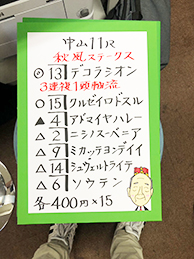 中山11R
秋風ステークス
◎13デコラシオン
3連複1頭軸流
○15クルゼイロドスル
▲4アドマイヤハレー
△2ニシノスーベニア
△9ミカッテヨンデイイ
△14シュヴェルトライテ
△6ソウテン
各400円×15